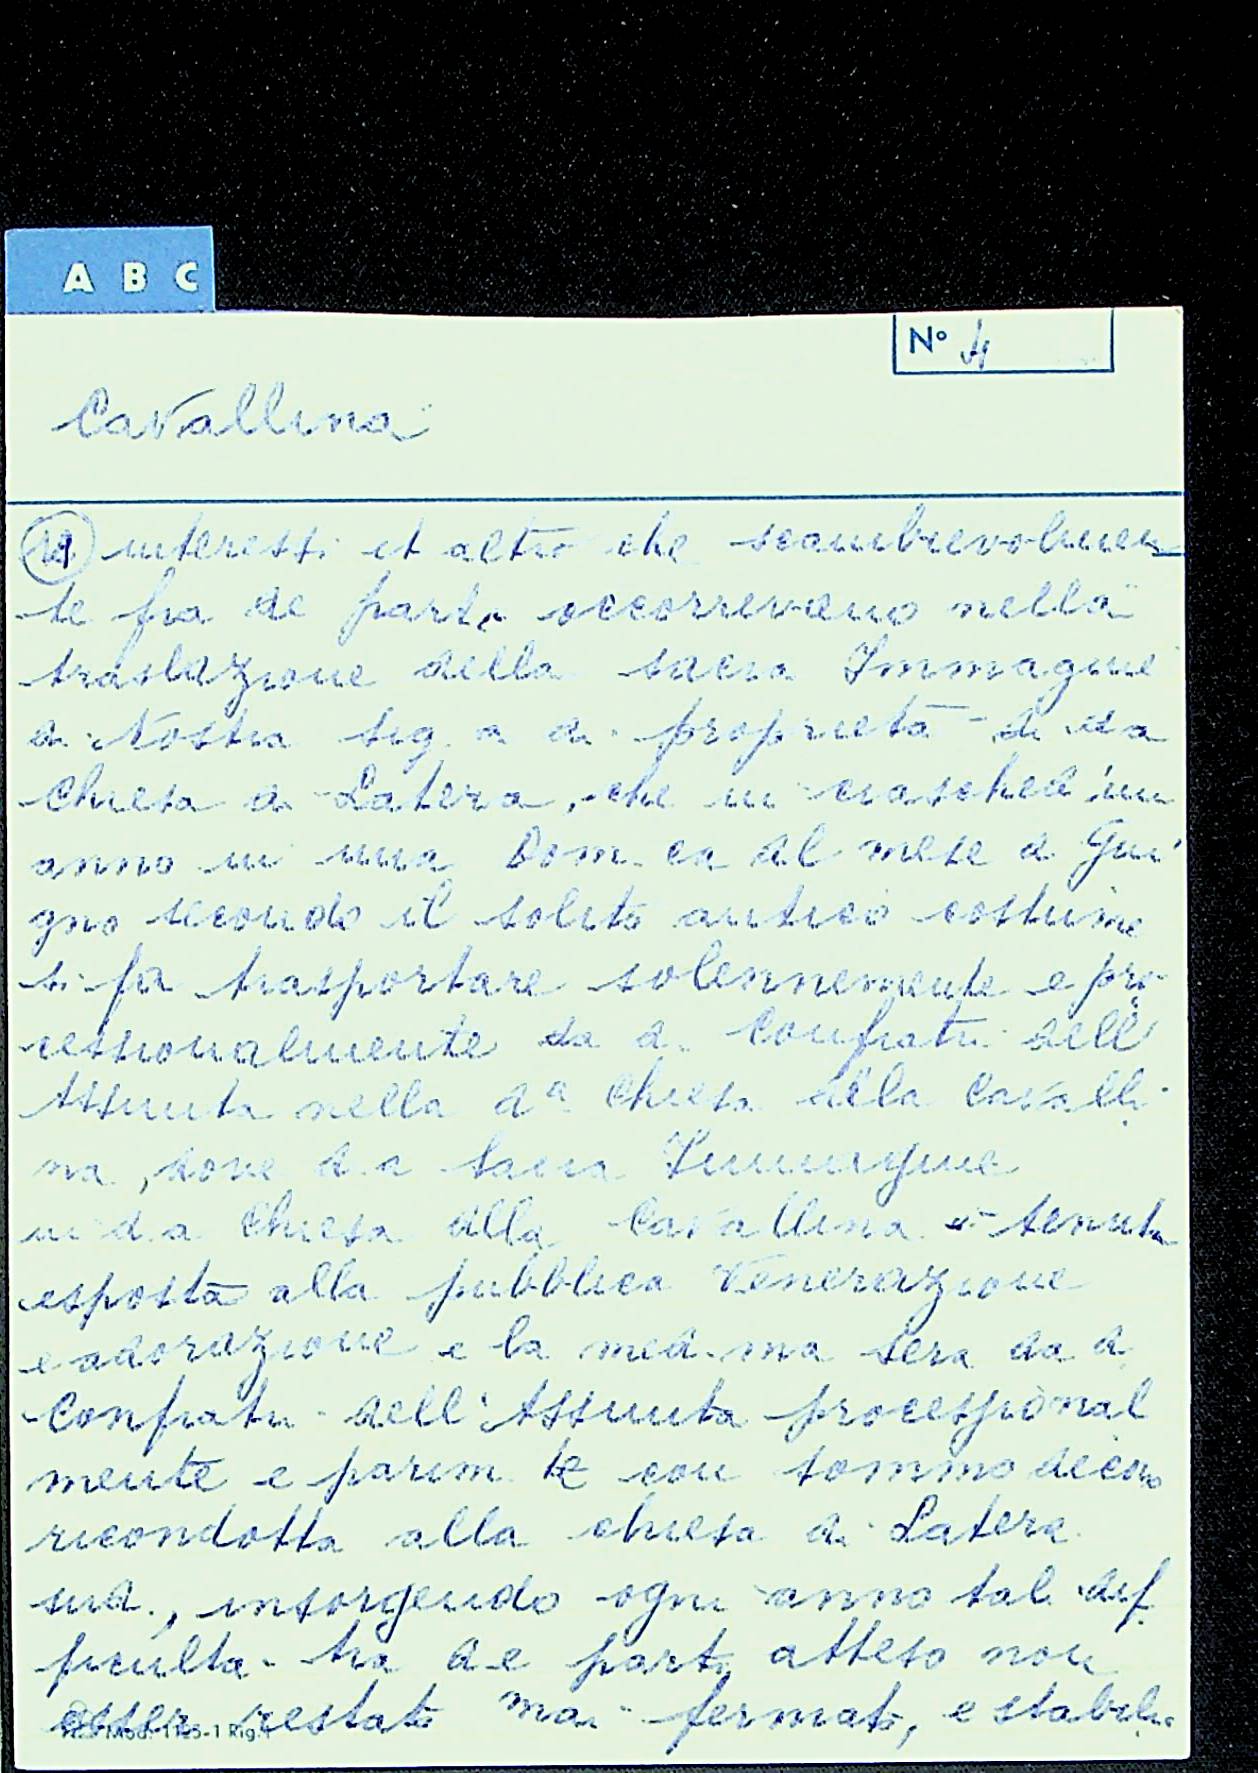 A B C
N° 4
Cavallina
interessi et altro che scambievolmen
te fra de parti occorrevano nella
traslazione della sacra Immagine
di Nostra Sig.a di proprietà di da
Chiesa di Latera, che in ciasched'un
anno in una Dom.ca del mese di Giu
gno secondo il solito antico costume
si fa trasportare solennemente e pro
cessionalmente da d. Confrati dell'
Assunta nella d.a Chiesa della Cavalli
na, dove d.a Sacra Immagine
in d.a Chiesa della Cavallina è tenuta
esposta alla pubblica Venerazione
e adorazione e la med.ma sera da d.
Confrati dell'Assunta processional
mente e parim.te con sommo decoro
ricondotta alla chiesa di Latera
sud., insorgendo ogni anno tali dif
ficulta tra d.e parti atteso non
esser restato mai fermato, e stabili
Mod. 1165-1 Rig.